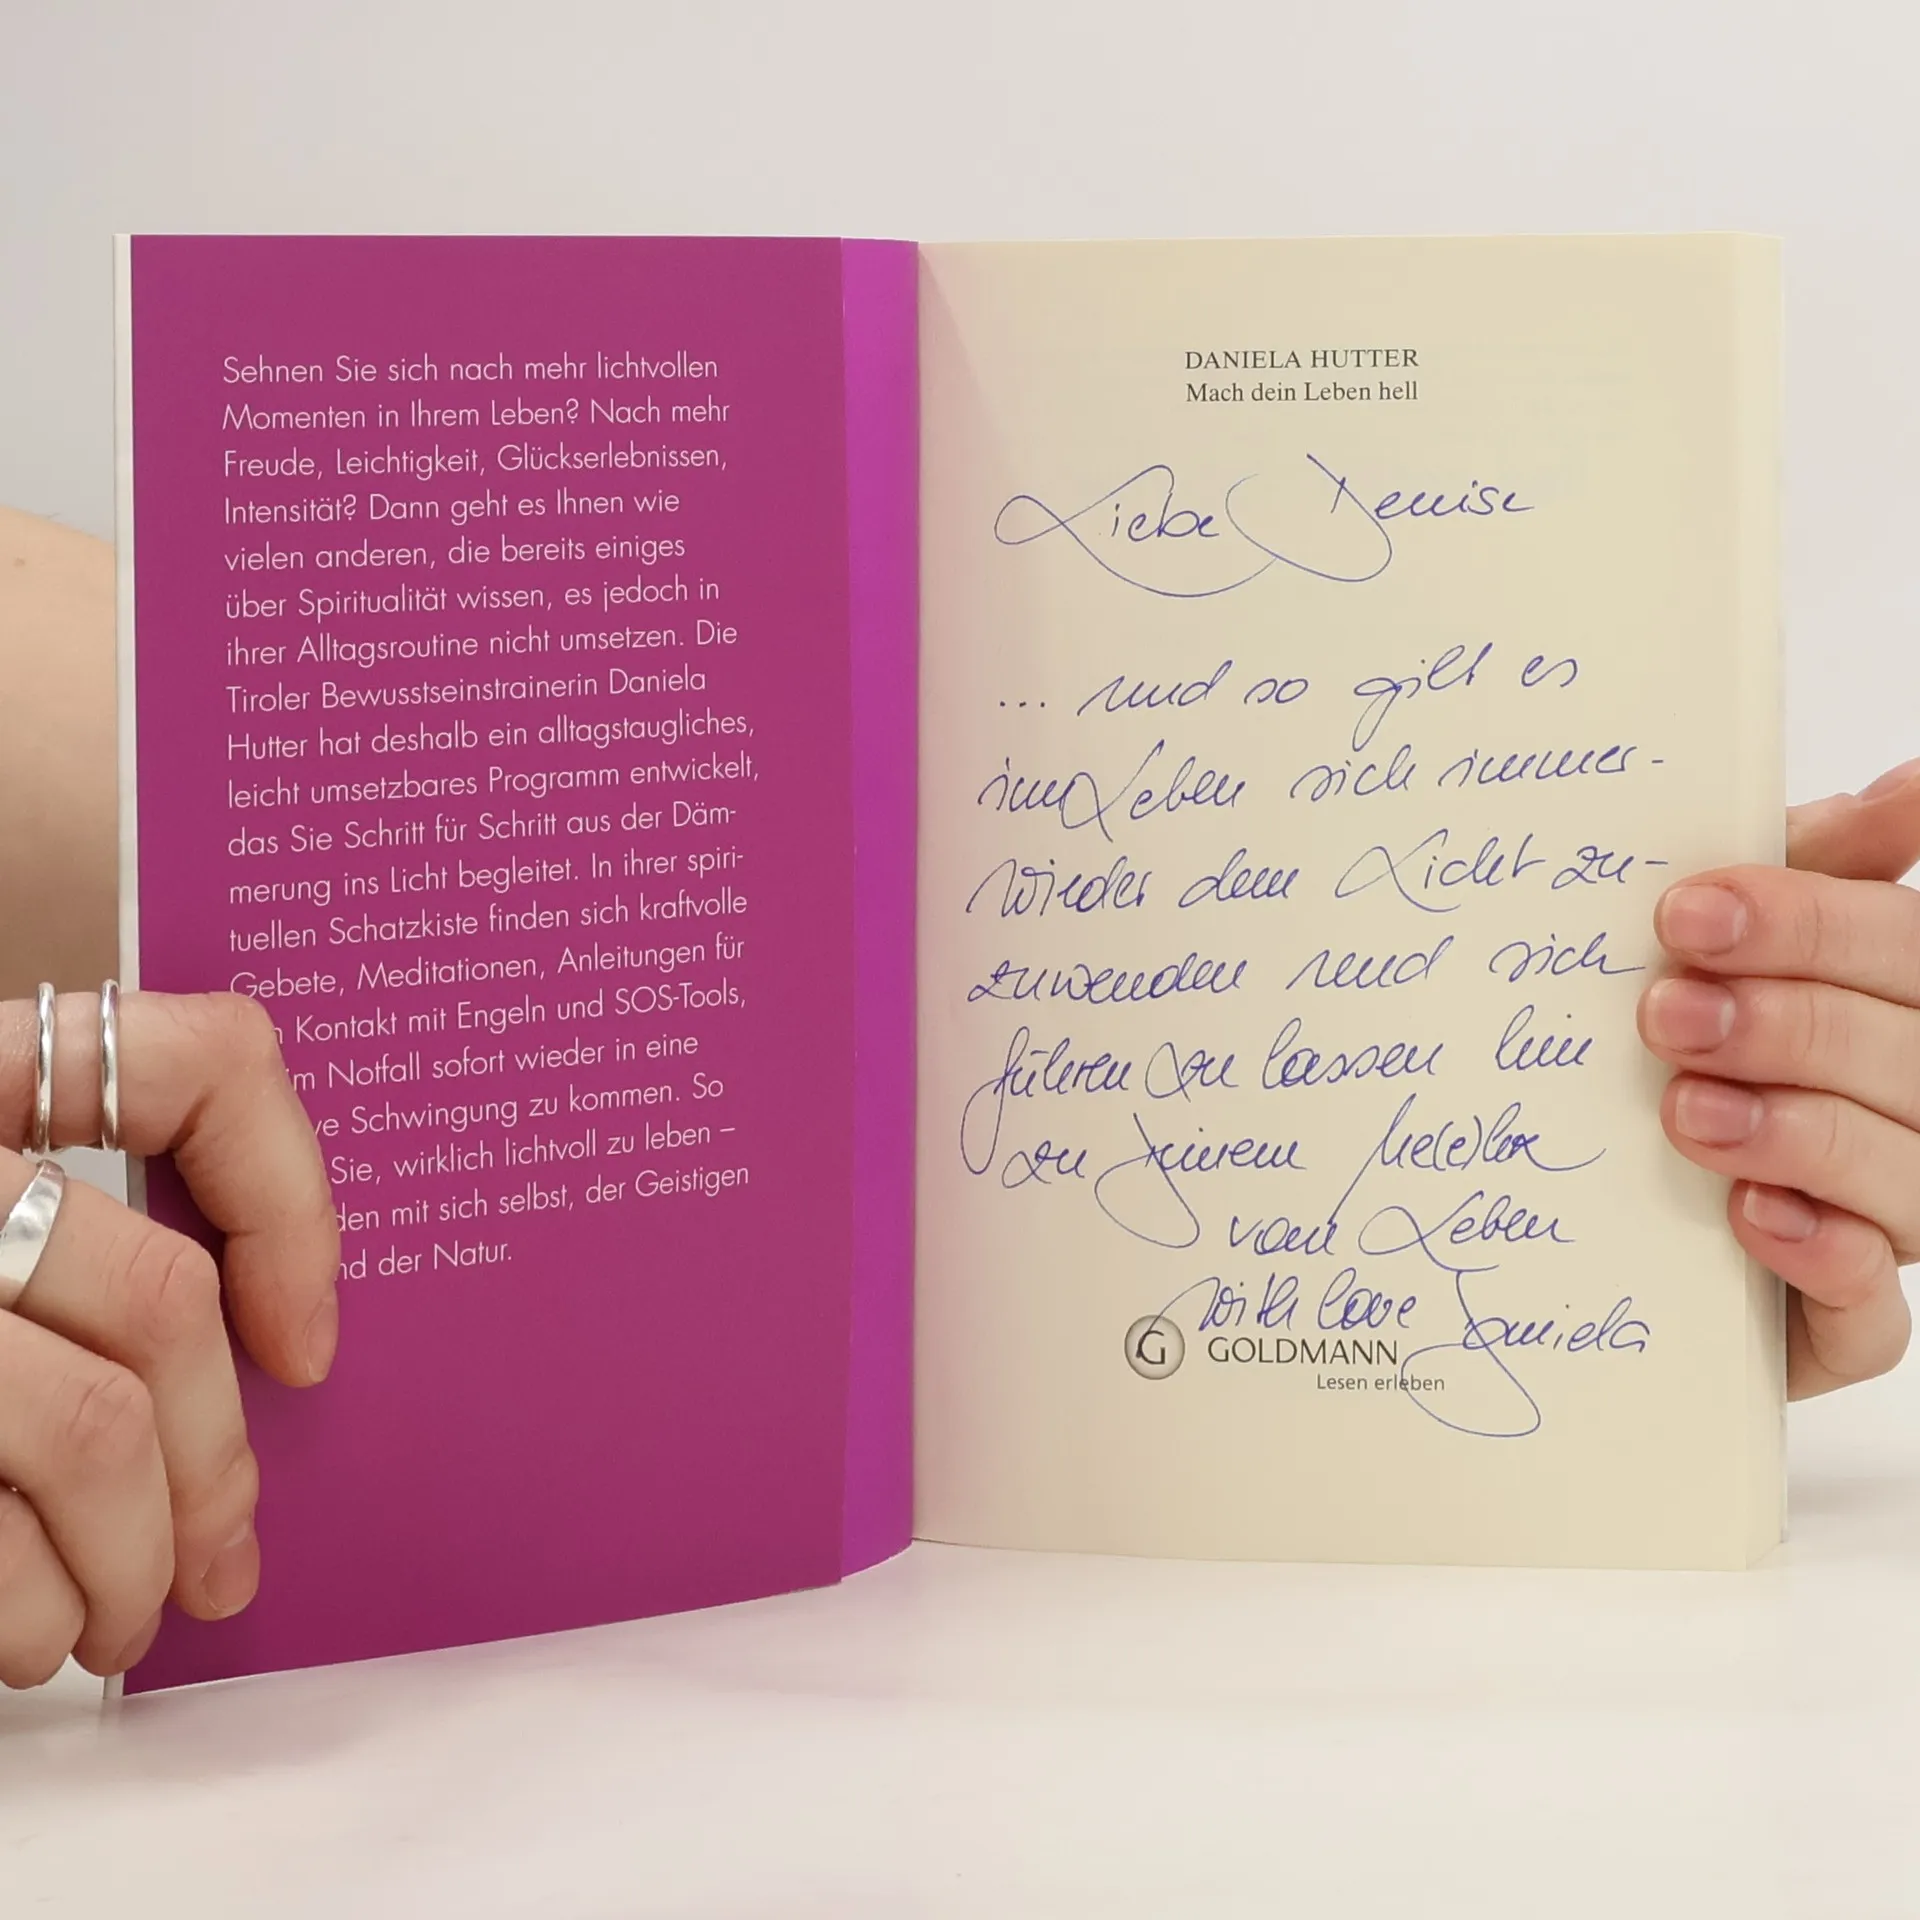 Sehnen Sie sich nach mehr lichtvollen
Momenten in Ihrem Leben? Nach mehr
Freude, Leichtigkeit, Glückserlebnissen,
Intensität? Dann geht es Ihnen wie
vielen anderen, die bereits einiges
über Spiritualität wissen, es jedoch in
ihrer Alltagsroutine nicht umsetzen. Die
Tiroler Bewusstseinstrainerin Daniela
Hutter hat deshalb ein alltagstaugliches,
leicht umsetzbares Programm entwickelt,
das Sie Schritt für Schritt aus der Däm-
merung ins Licht begleitet. In ihrer spiri-
tuellen Schatzkiste finden sich kraftvolle
Gebete, Meditationen, Anleitungen für
Kontakt mit Engeln und SOS-Tools,
Notfall sofort wieder in eine
Schwingung zu kommen. So
Sie, wirklich lichtvoll zu leben –
mit sich selbst, der Geistigen
der Natur.
DANIELA HUTTER
Mach dein Leben hell
Liebe Denise
... und so gilt es
im Leben sich immer-
wieder dem Licht zu-
zuwenden und sich
führen zu lassen hin
zu Deinem Me(e)hr
vom Leben
with love Daniela
G GOLDMANN
Lesen erleben